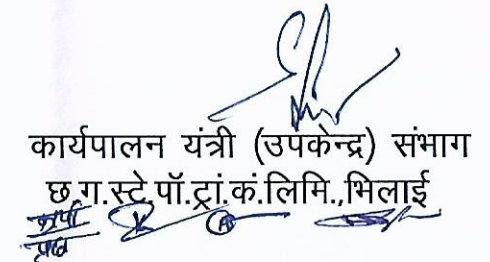 कार्यपालन यंत्री (उपकेन्द्र) संभाग
छ.ग.स्टे.पॉ.ट्रां.कं.लिमि.,भिलाई